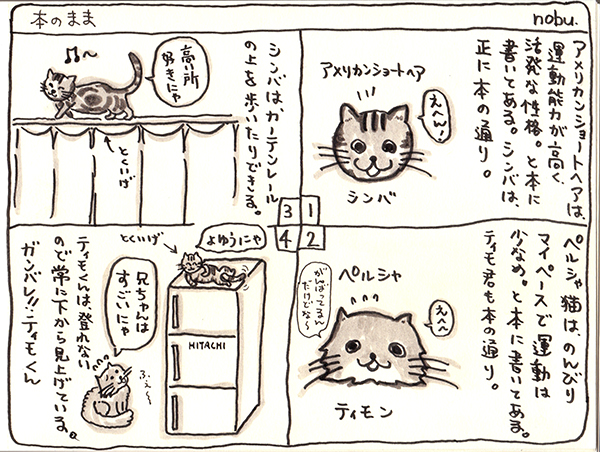 本のまま
nobu.
アメリカンショートヘアは、
運動能力が高く、
活発な性格。と本に
書いてある。シンバは、
正に本の通り。
アメリカンショートヘア
えへん!
シンバ
1
ペルシャ猫は、のんびり
マイペースで運動は
少なめ。と本に書いてある。
ティモ君も本の通り。
ペルシャ
えへへ
がんばってるん
だけどな〜
ティモン
2
シンバは、カーテンレール
の上を歩いたりできる。
高い所
好きにゃ
とくいげ
3
とくいげ
よゆうにゃ
兄ちゃんは
すごいにゃ
HITACHI
ふぇ〜
ティモくんは登れない
ので常に下から見上げている。
ガンバレ!!ティモくん
4